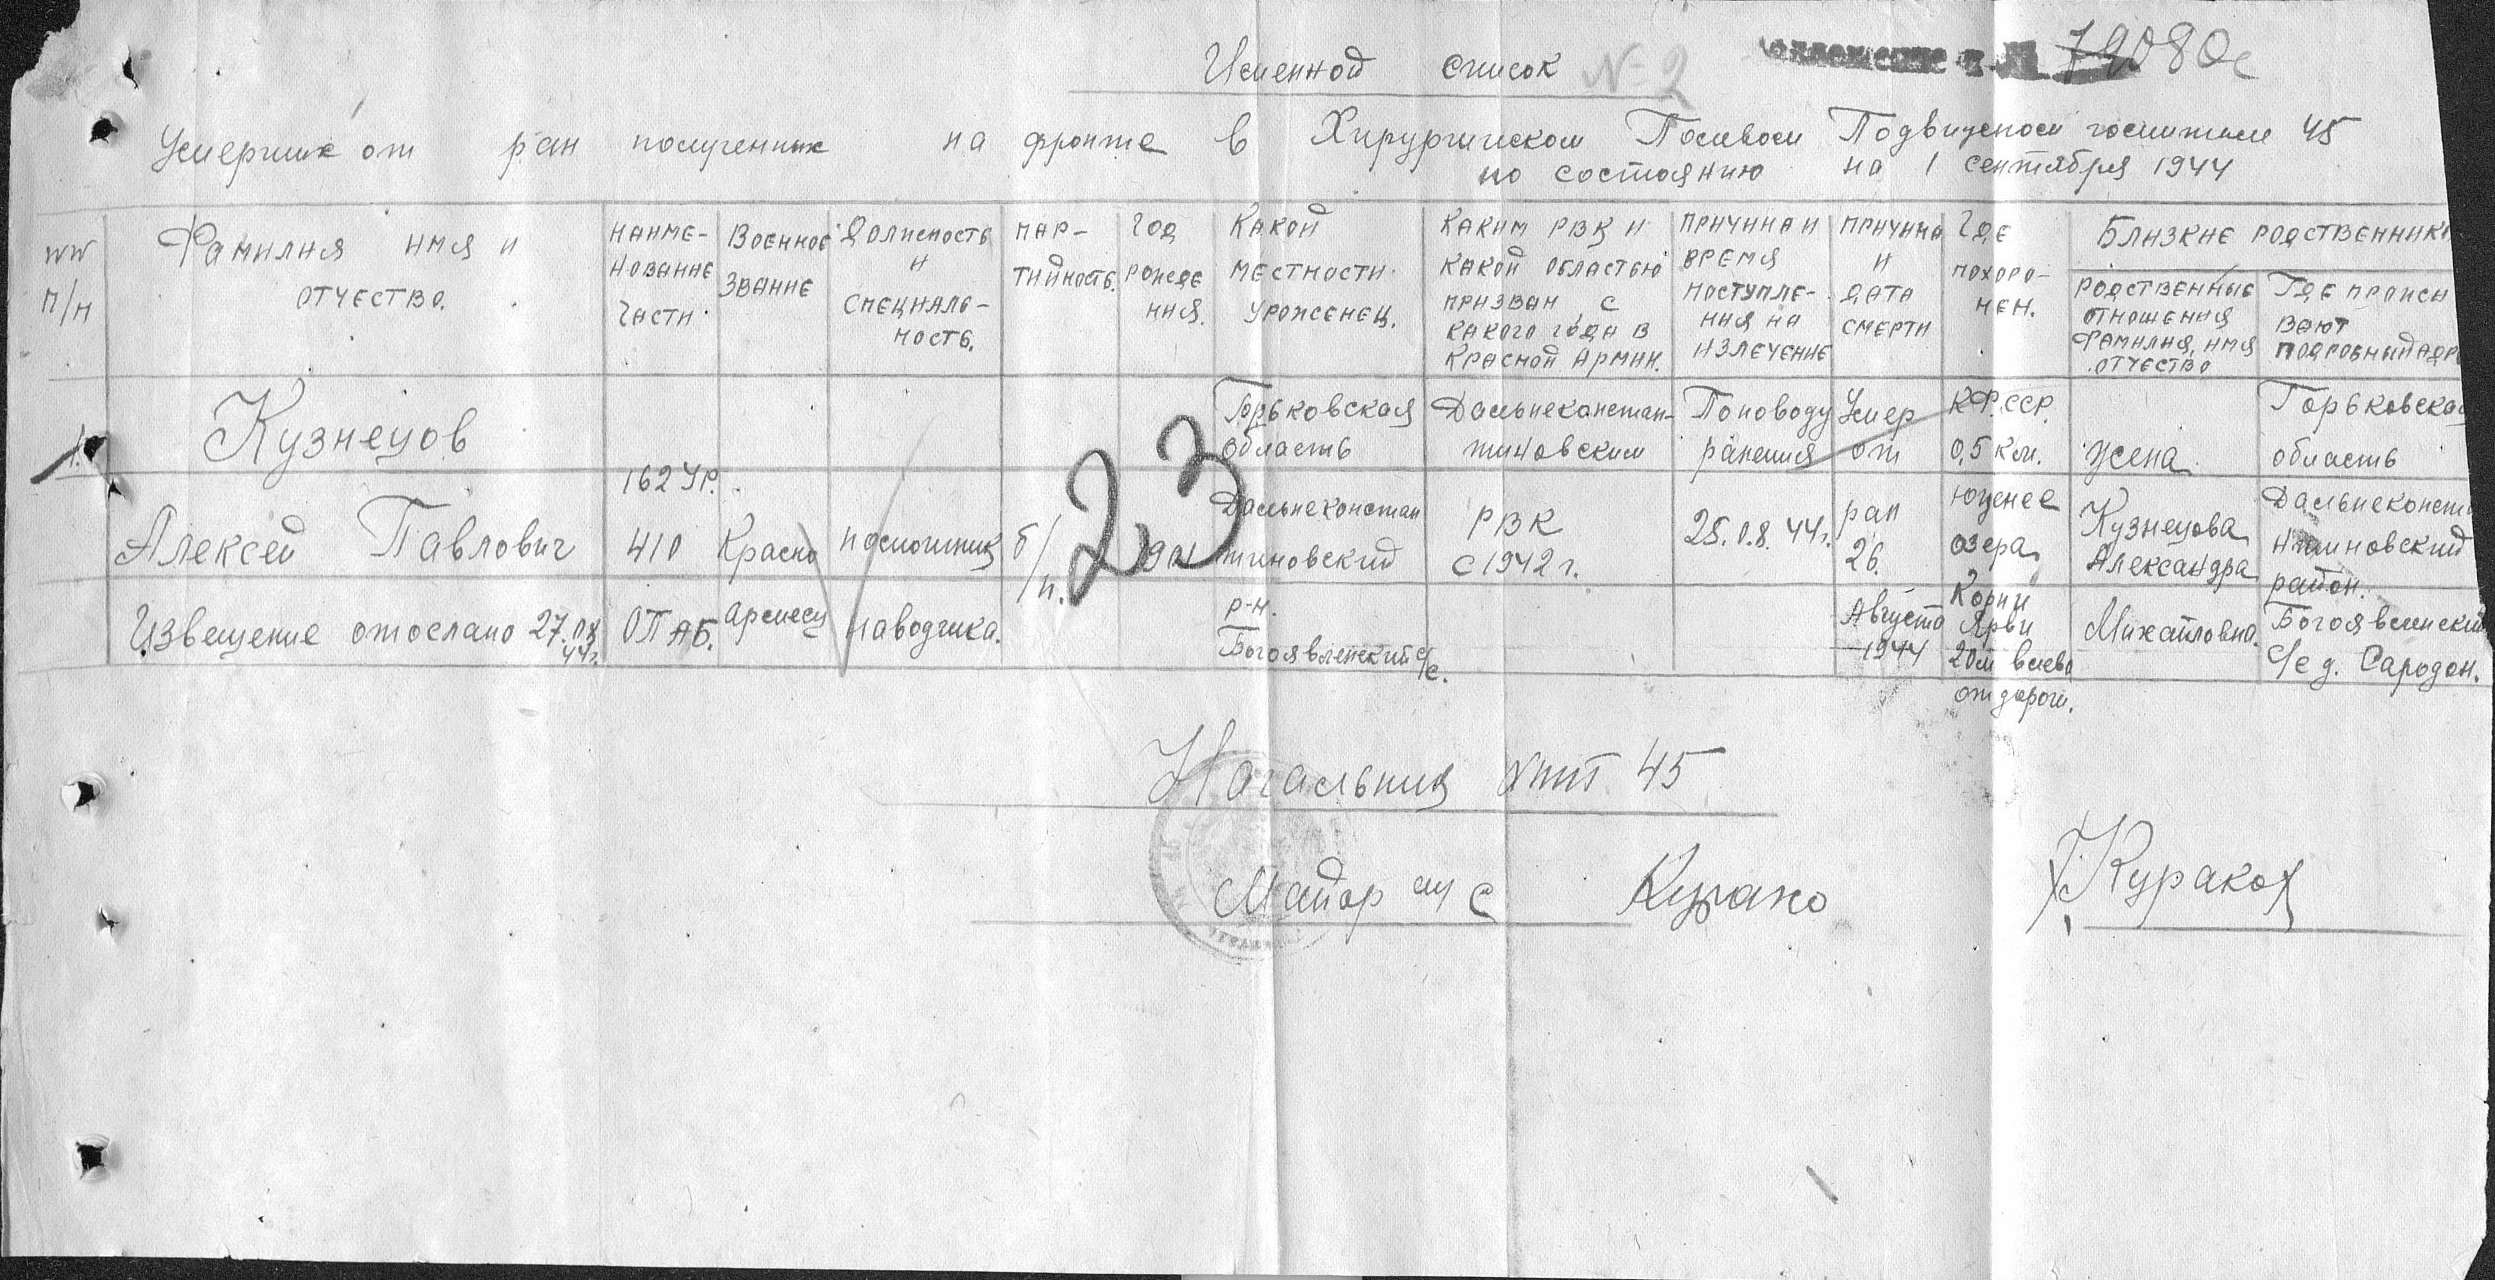 Именной список № 2
79080с
Умерших от ран полученных на фронте в Хирургическом Полевом Подвижном госпитале 45
по состоянию на 1 сентября 1944
№№ п/п
Фамилия имя и отчество.
Наименование части
Военное звание
Должность и специальность.
Партийность.
Год рождения.
Какой местности уроженец.
Каким РВК и какой областью призван с какого года в Красной Армии.
Причина и время поступления на излечение
Причина и дата смерти
Где похоронен.
Близкие родственники
Родственные отношения фамилия, имя отчество
Где прожи
вают
подробный адр
1.
Кузнецов
Алексей Павлович
Извещение отослано 27.08.44г.
162 УР.
410
ОПАБ.
Красно
армеец
помощник
наводчика.
б/п.
23
Горьковская
область
Дальнеконстан
тиновский
р-н.
Богоявленский с/с.
Дальнеконстан-
тиновским
РВК
с 1942 г.
По поводу
ранения
25.08.44г.
Умер
от
ран
26.
Августа
1944
КФССР.
0,5 км.
южнее
озера
Корпи
Ярви
20м влево
от дороги.
жена
Кузнецова
Александра
Михайловна.
Горьковская
область
Дальнеконста
нтиновский
район.
Богоявленский
с/с д. Сародон.
Начальник ХППГ 45
Майор м/с Курако
Курако